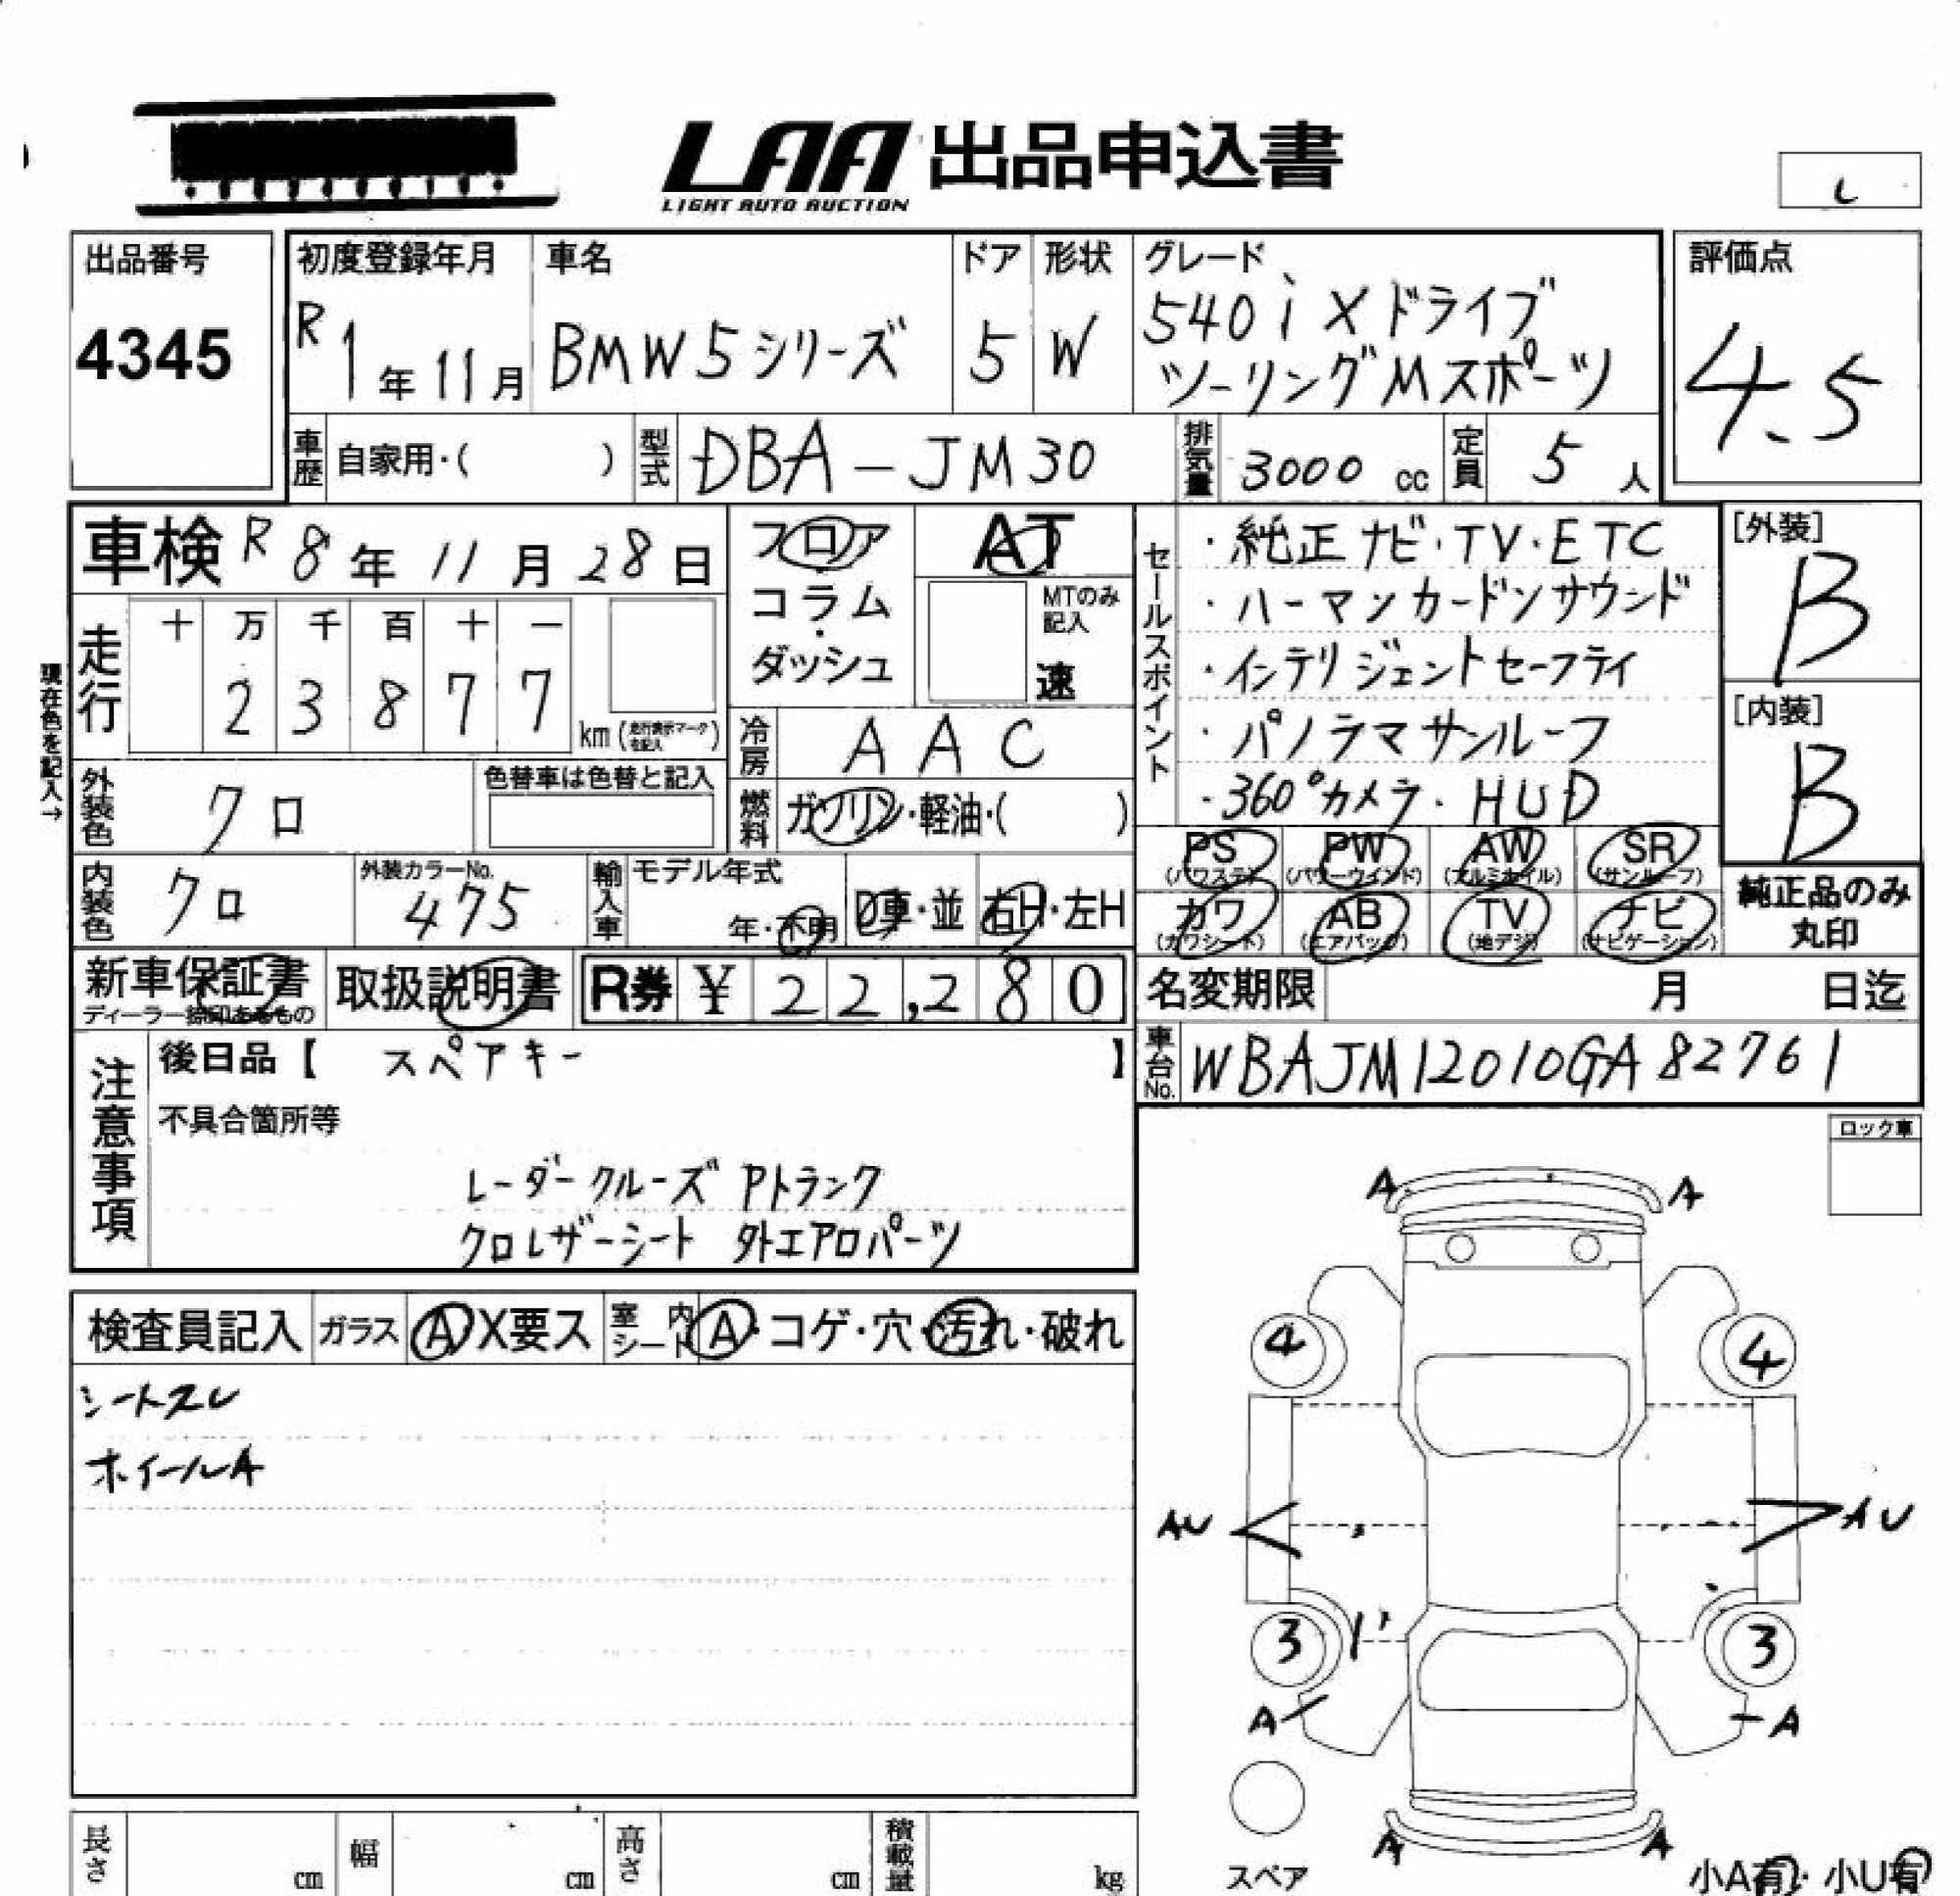 LAA 出品申込書
LIGHT AUTO AUCTION
し
出品番号
4345
初度登録年月
R1年11月
車名
BMW5シリーズ
ドア
5
形状
W
グレード
540i Xドライブ
ツーリングMスポーツ
評価点
4.5
車歴 自家用・( )
型式 DBA-JM30
排気量 3000 cc
定員 5 人
車検 R8年11月28日
フロア
コラム
・
ダッシュ
AT
MTのみ
記入
速
現在色を記入→
走行
十 万 千 百 十 一
2 3 8 7 7
km (走行表示マークを記入)
冷房 AAC
外装色 クロ
色替車は色替と記入
燃料 ガソリン・軽油・( )
内装色 クロ
外装カラーNo.
475
輸入車
モデル年式
年・不明
D車・並
右H・左H
セールスポイント
・純正ナビ・TV・ETC
・ハーマンカードンサウンド
・インテリジェントセーフティ
・パノラマサンルーフ
・360°カメラ・HUD
[外装]
B
[内装]
B
PS (パワステ)
PW (パワーウインド)
AW (アルミホイル)
SR (サンルーフ)
カワ (カワシート)
AB (エアバッグ)
TV (地デジ)
ナビ (ナビゲーション)
純正品のみ
丸印
新車保証書
ディーラー捺印あるもの
取扱説明書
R券 ¥22,280
名変期限 月 日迄
車台No. WBAJM12010GA82761
注意事項
後日品【 スペアキー 】
不具合箇所等
レーダークルーズ Pトランク
クロレザーシート 外エアロパーツ
ロック車
検査員記入
ガラス A・X要ス
室内シート A・コゲ・穴・汚れ・破れ
シートスレ
ホイールA
A A
4 4
AU AU
3 3
A A
A A
スペア
小A有・小U有
長さ cm
幅 cm
高さ cm
積載量 kg